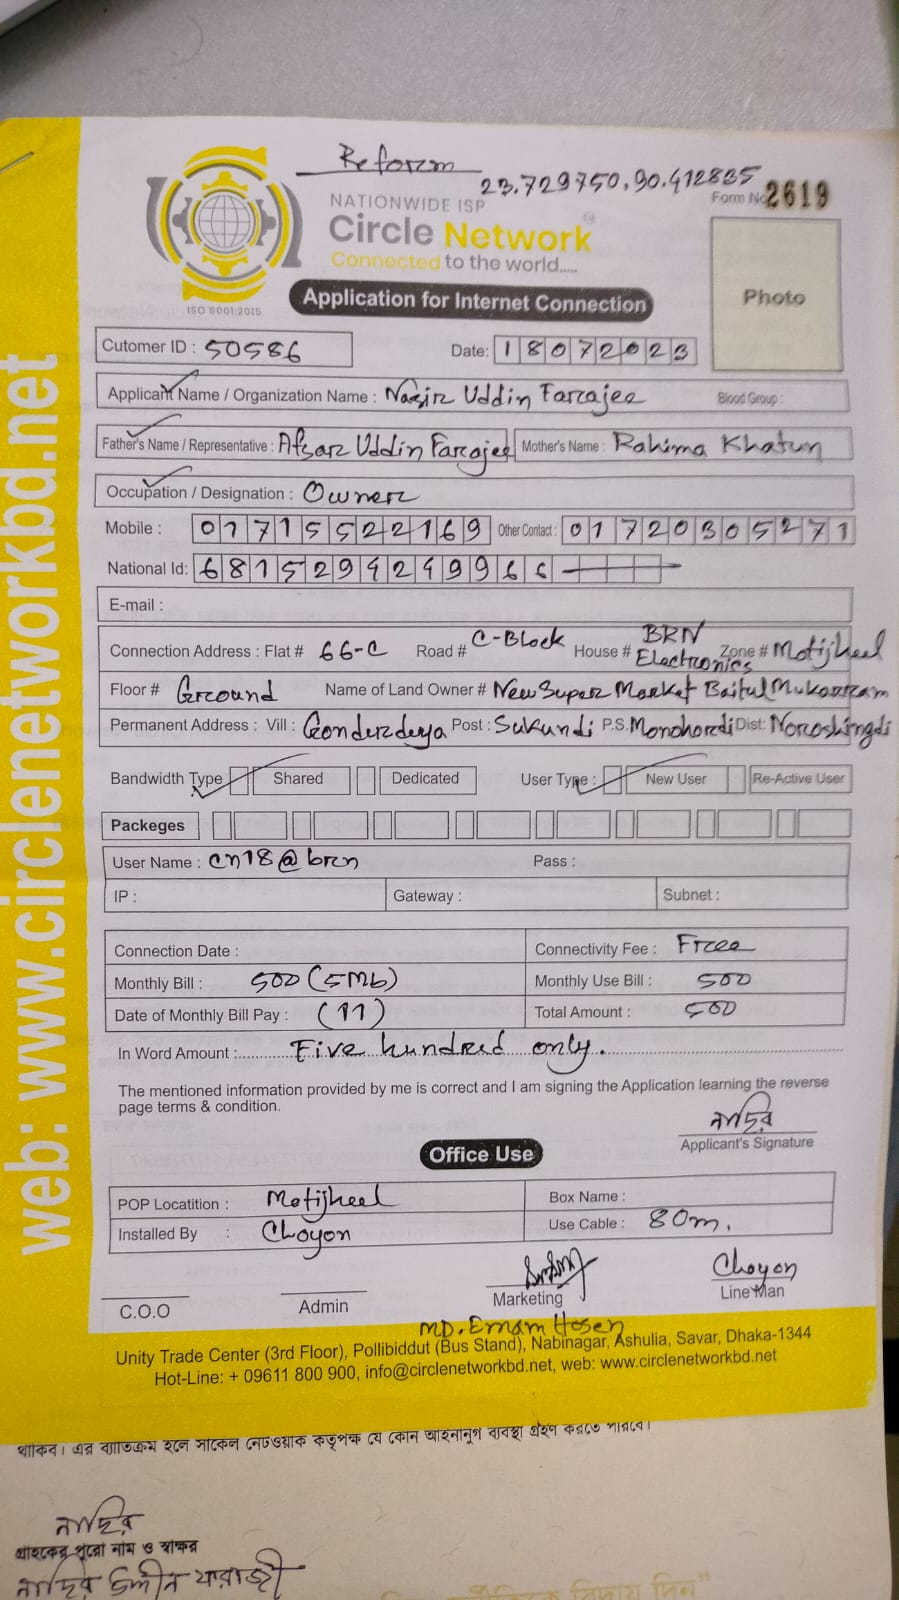 Reform
23.729750, 90.412835
Form No 2619
NATIONWIDE ISP
Circle Network
Connected to the world.....
ISO 9001:2015
Application for Internet Connection
Photo
Cutomer ID : 50586
Date: 18072023
Applicant Name / Organization Name : Nazir Uddin Farajee
Blood Group :
Father's Name / Representative : Afsar Uddin Farajee Mother's Name : Rahima Khatun
Occupation / Designation : Owner
Mobile : 01715522169 Other Contact : 01720305271
National Id: 6815294249966
E-mail :
Connection Address : Flat # 66-C Road # C-Block House # BRN Electronics Zone # Motijheel
Floor # Ground Name of Land Owner # New Super Market Baitul Mukorram
Permanent Address : Vill : Gonderdeya Post : Sukundi P.S. Monohordi Dist: Noroshingdi
Bandwidth Type Shared Dedicated User Type : New User Re-Active User
Packeges
User Name : cn18@brn Pass :
IP : Gateway : Subnet :
Connection Date : Connectivity Fee : Free
Monthly Bill : 500 (5Mb) Monthly Use Bill : 500
Date of Monthly Bill Pay : (11) Total Amount : 500
In Word Amount : Five hundred only.
The mentioned information provided by me is correct and I am signing the Application learning the reverse
page terms & condition.
নাছির
Applicant's Signature
Office Use
POP Locatition : Motijheel Box Name :
Installed By : Choyon Use Cable : 80m.
Choyon
C.O.O Admin Marketing Line Man
MD. Emam Hosen
Unity Trade Center (3rd Floor), Pollibiddut (Bus Stand), Nabinagar, Ashulia, Savar, Dhaka-1344
Hot-Line: + 09611 800 900, info@circlenetworkbd.net, web: www.circlenetworkbd.net
web: www.circlenetworkbd.net
থাকিব। এর ব্যাতিক্রম হলে সার্কেল নেটওয়ার্ক কতৃপক্ষ যে কোন আইনানুগ ব্যবস্থা গ্রহণ করতে পারবে।
নাছির
গ্রাহকের পুরো নাম ও স্বাক্ষর
নাছির উদ্দীন ফারাজী